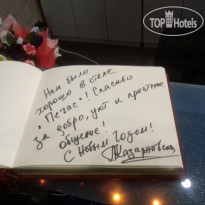 TOP Hotels
Нам было
хорошо в отеле
"Пегас"! Спасибо
за добро, уют и приятное
общение!
С Новым Годом!